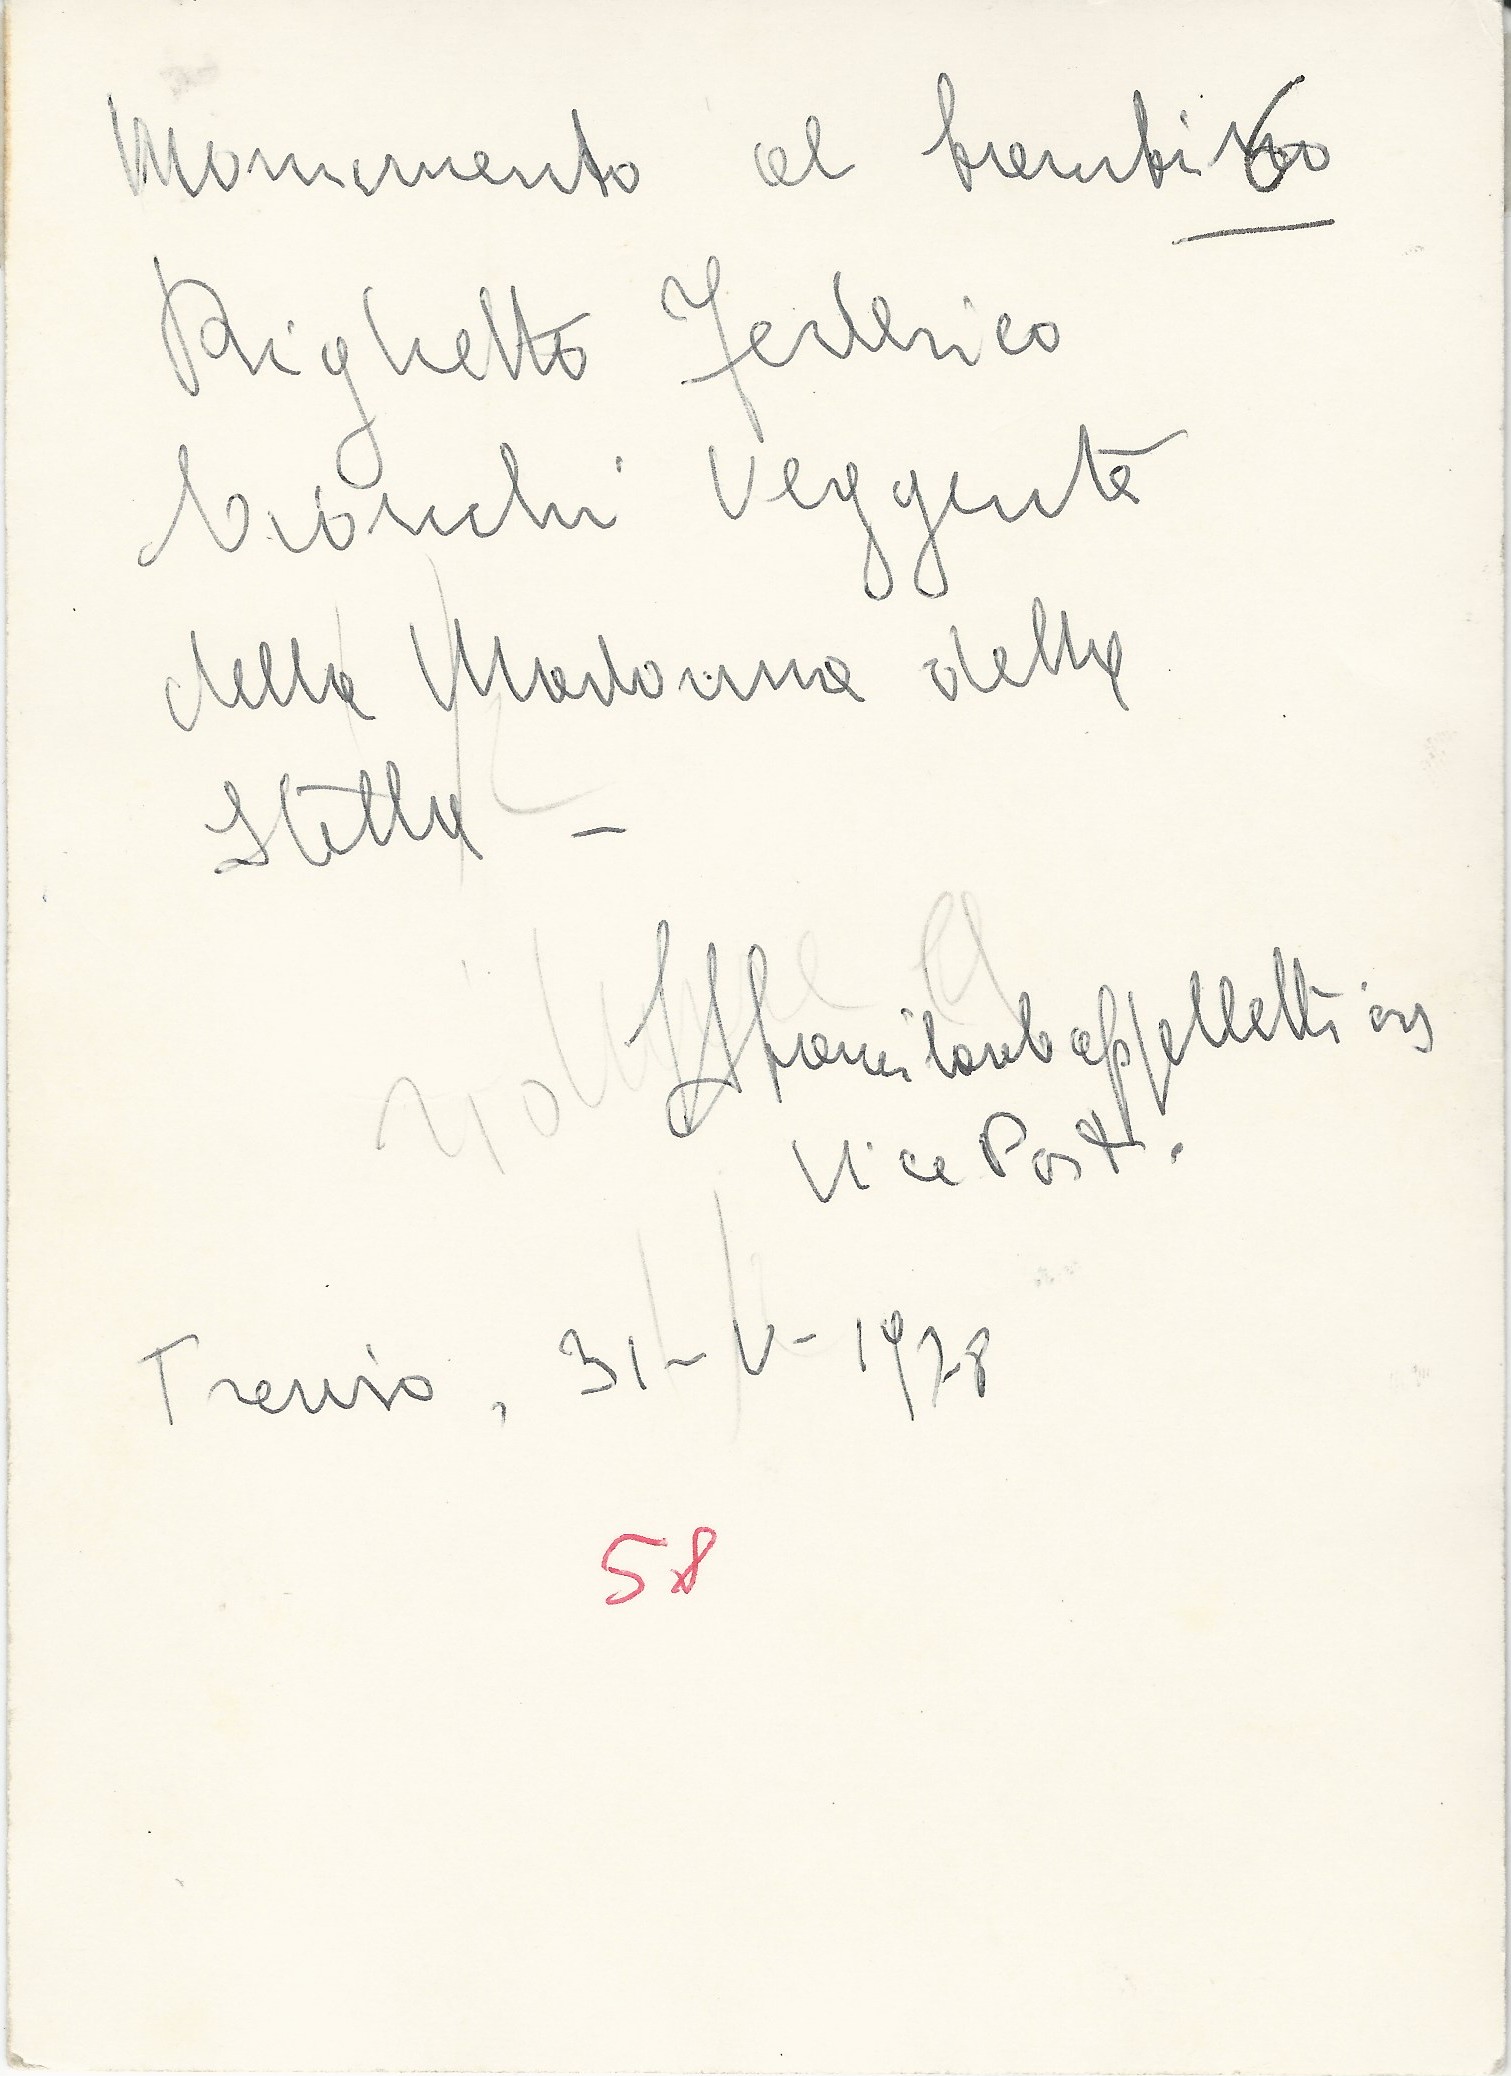 Monumento al bambino
Righetto Federico
Cionchi veggente
della Madonna della
Stella -
Stanislao Cappelletti cp
Vice Post.
Treviso, 31-V-1978
58